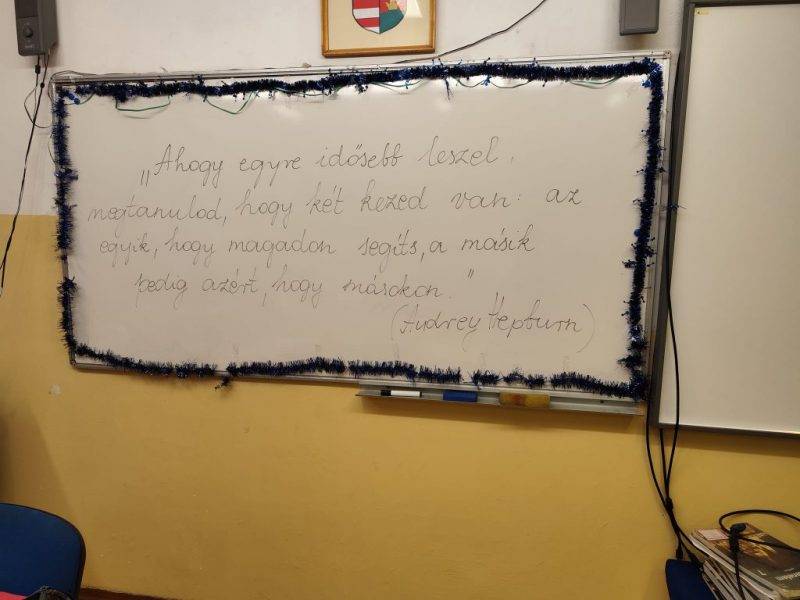 „Ahogy egyre idősebb leszel,
megtanulod, hogy két kezed van: az
egyik, hogy magadon segíts, a másik
pedig azért, hogy másokon."
(Audrey Hepburn)